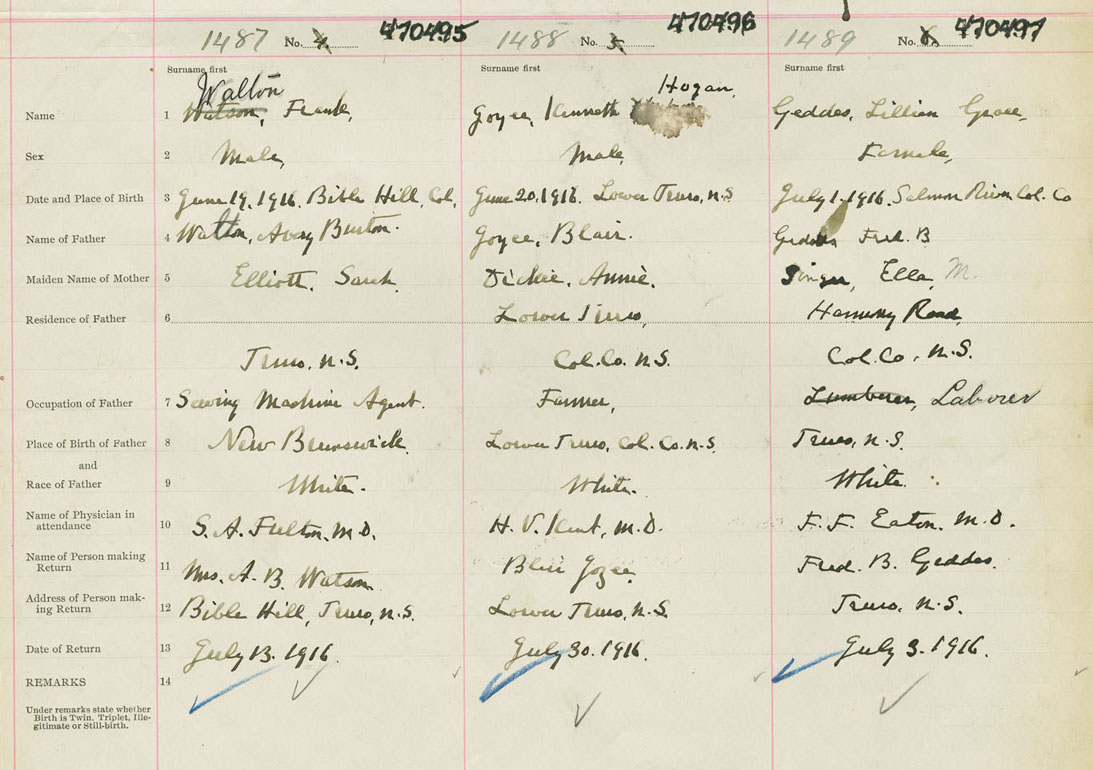 1487 No. 4. 470495 1488 No. 5. 470496 1489 No. 6. 470497
Surname first Surname first Surname first
Walton Hogan,
Name 1 Watson, Frank, Joyce, Kenneth Geddes, Lillian Grace,
Sex 2 Male, Male, Female,
Date and Place of Birth 3 June 19, 1916. Bible Hill, Col, June 20. 1916. Lower Truro, N.S July 1. 1916. Salmon River Col. Co
Name of Father 4 Walton, Avery Burton. Joyce, Blair. Geddes Fred. B
Maiden Name of Mother 5 Elliott, Sarah, Dickie, Annie, Singer, Ella, M.
Residence of Father 6 Lower Truro, Harmony Road,
Truro, N.S. Col. Co. N.S. Col. Co, N.S.
Occupation of Father 7 Sewing Machine Agent. Farmer, Lumberer, Laborer
Place of Birth of Father 8 New Brunswick, Lower Truro, Col. Co. N.S. Truro, N.S.
and
Race of Father 9 White. White. White.
Name of Physician in
attendance 10 S. A. Fulton, M.D. H. V. Kent, M.D. F. F. Eaton, M.D.
Name of Person making
Return 11 Mrs. A. B. Watson Blair Joyce, Fred. B. Geddes.
Address of Person mak-
ing Return 12 Bible Hill, Truro, N.S. Lower Truro, N.S. Truro, N.S.
Date of Return 13 July 13. 1916. July 30. 1916. July 3. 1916.
REMARKS 14
Under remarks state whether
Birth is Twin, Triplet, Ille-
gitimate or Still-birth.